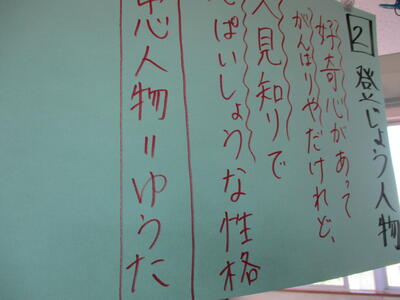 2 登じょう人物
好奇心があって
がんばりやだけれど、
人見知りで
ぱいしょうな性格
人物=ゆうた